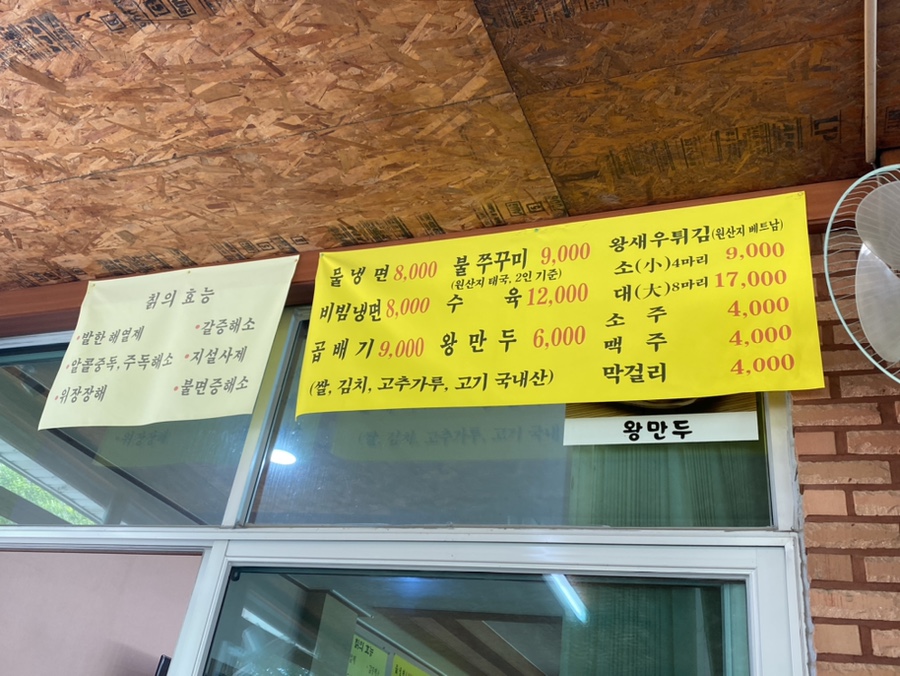 칡의 효능
*발한 해열제
*갈증해소
*알콜중독, 주독해소
*지설사제
*위장장해
*불면증해소
물냉면 8,000
비빔냉면 8,000
곱배기 9,000
불쭈꾸미 9,000
(원산지 태국, 2인 기준)
수육 12,000
왕만두 6,000
(쌀, 김치, 고추가루, 고기 국내산)
왕새우튀김 (원산지 베트남)
소(小) 4마리 9,000
대(大) 8마리 17,000
소주 4,000
맥주 4,000
막걸리 4,000
왕만두
칡의 효능